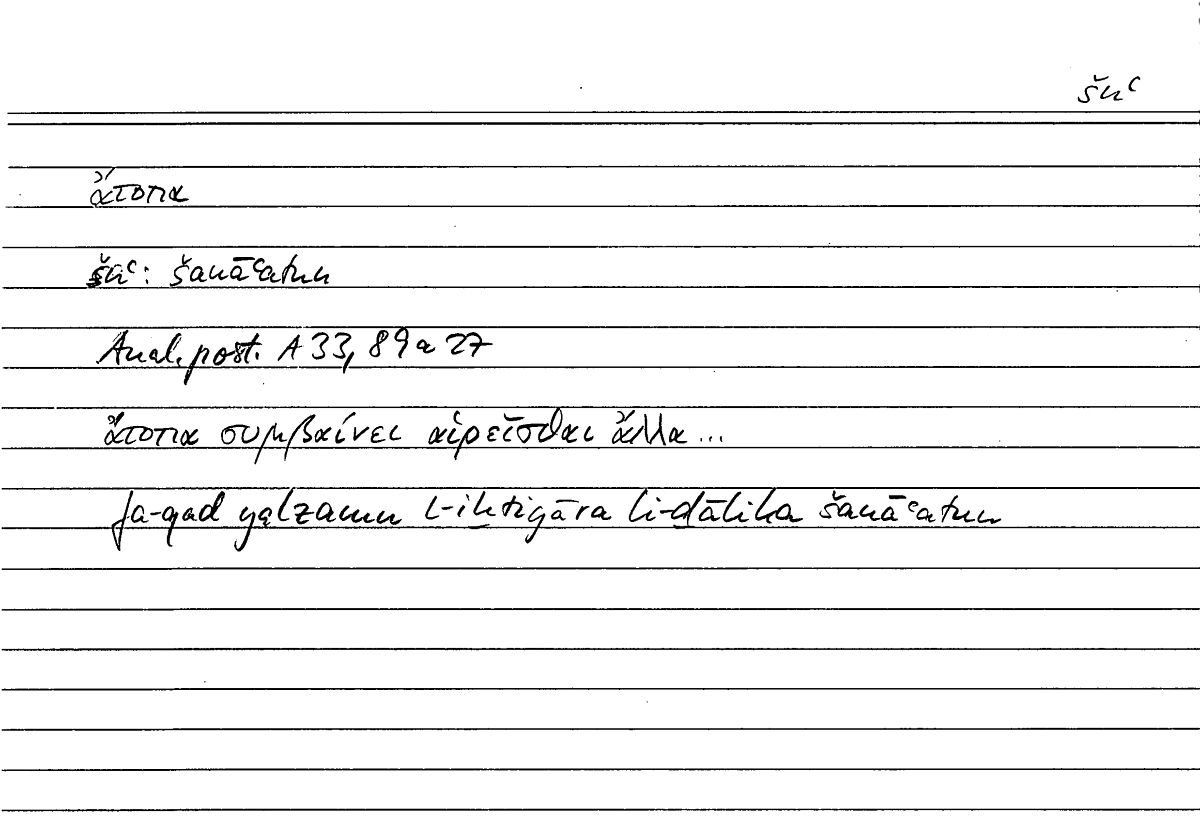 šnʿ
ἄτοπα
šnʿ: šanāʿatun
Anal. post. A 33, 89 a 27
ἄτοπα συμβαίνει αἱρεῖσθαι ἄλλα...
fa-qad yalzamu l-iḫtiyāra li-ḏālika šanāʿatun